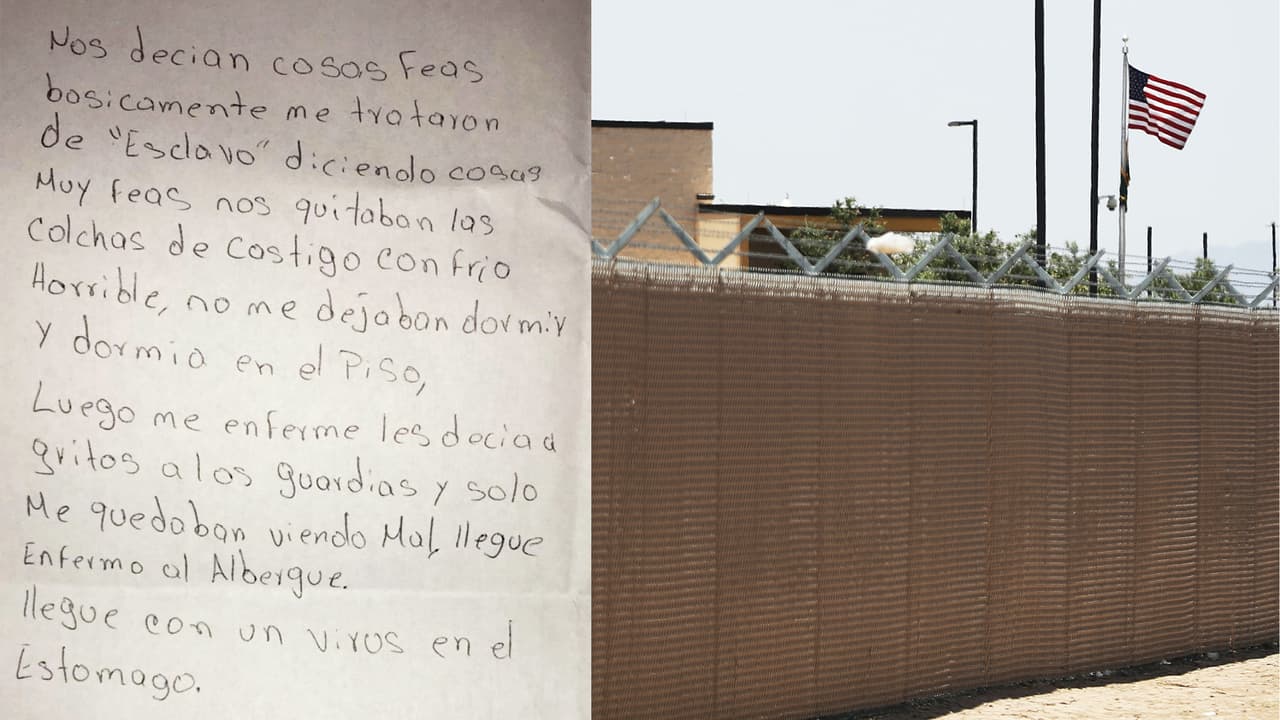 Nos decian cosas Feas
basicamente me trataron
de "Esclavo" diciendo cosas
Muy feas nos quitaban las
colchas de castigo con frio
Horrible, no me dejaban dormir
y dormia en el Piso,
Luego me enferme les decia a
gritos a los guardias y solo
Me quedaban viendo Mal, llegue
Enfermo al Albergue.
llegue con un virus en el
Estomago.